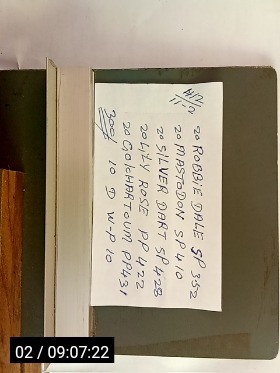 4/2
11-2
20 ROBBiE DALE SP 352
20 MASTODON SP 410
20 SiLVER DART SP 428
20 LiLY ROSE PP 422
20 GOiCHARTOUM PP431
300f 10 D W-P 10
02 / 09:07:22